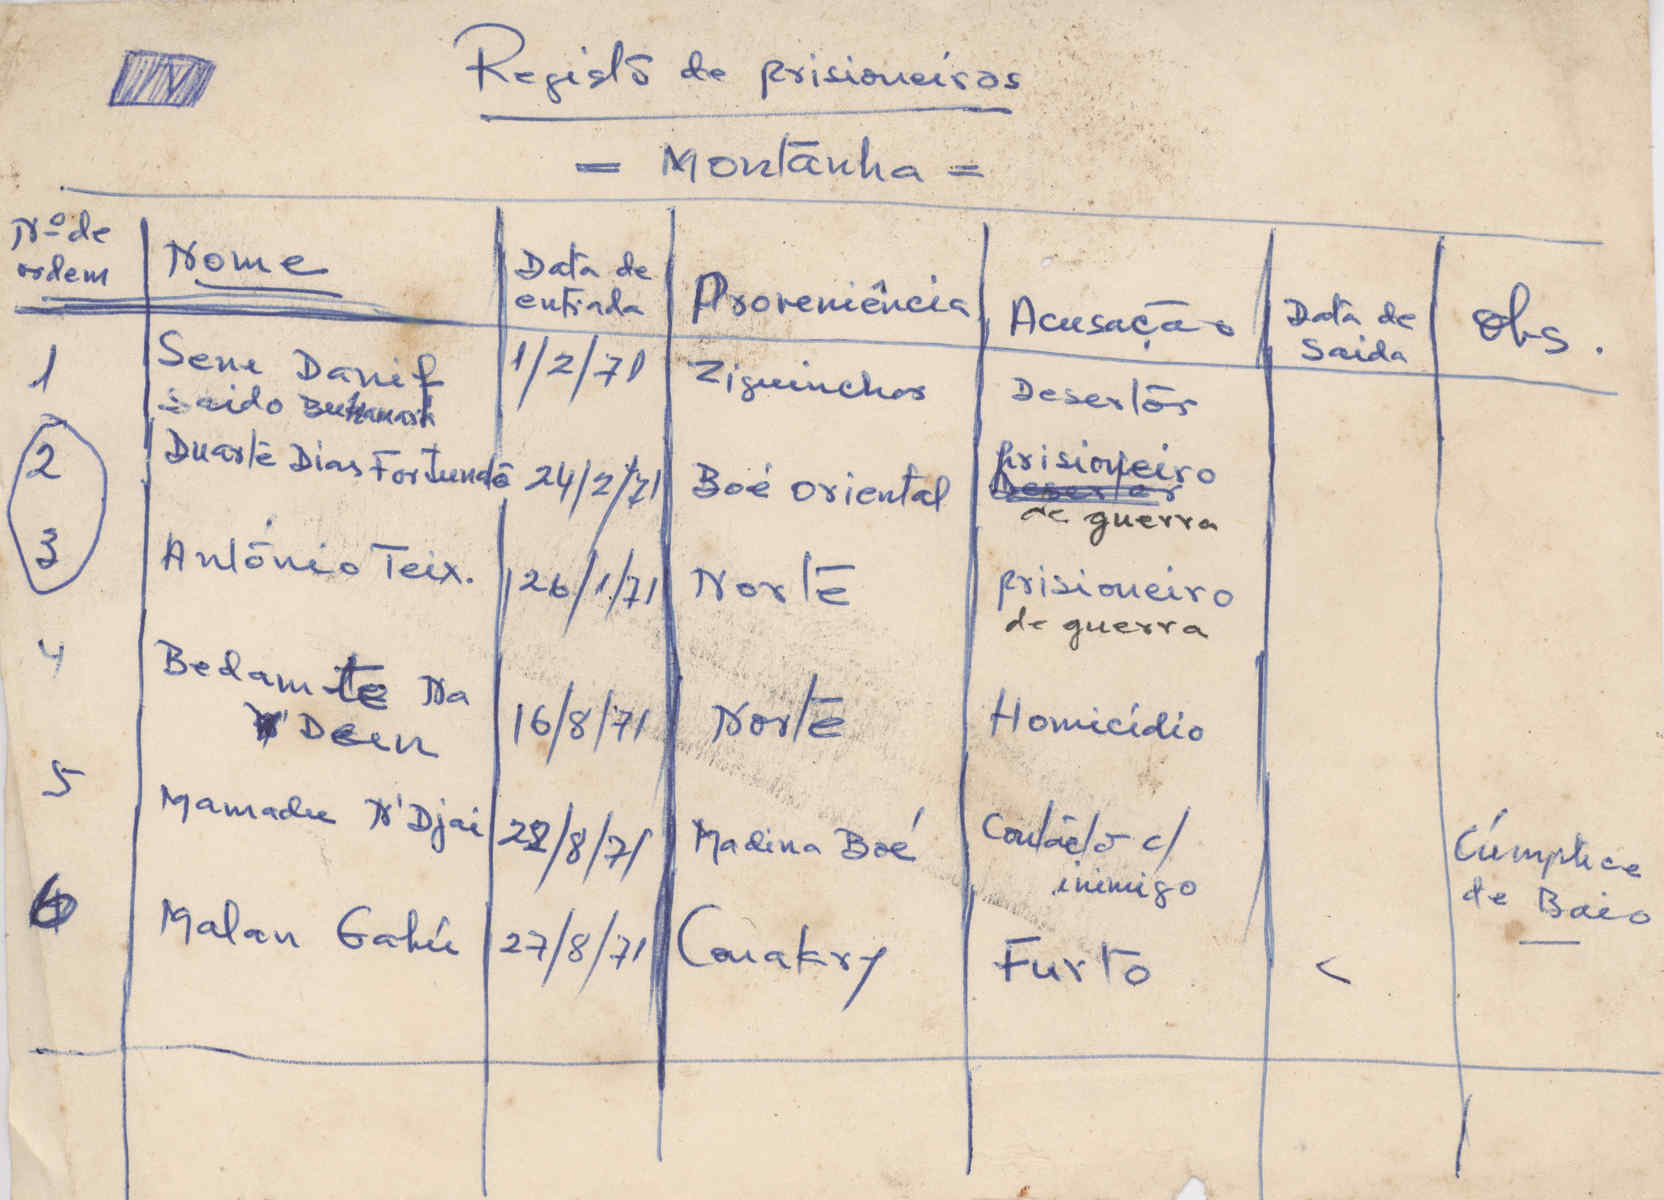 Registo de prisioneiros
= Montanha =
Nº de ordem Nome Data de entrada Proveniência Acusação Data de Saida Obs.
1 Seni Danif 1/2/71 Ziguinchor Desertor
saido
2 Duarte Dias Fortunato 24/2/71 Boé oriental prisioneiro
Desertor
de guerra
3 António Teix. 26/1/71 Norte prisioneiro
de guerra
4 Bedamte Na
N'Deen 16/8/71 Norte Homicídio
5 Mamadu N'Djai 22/8/71 Madina Boé Contacto c/
inimigo Cúmplice
de Baio
6 Malan Gabú 27/8/71 Conakry Furto